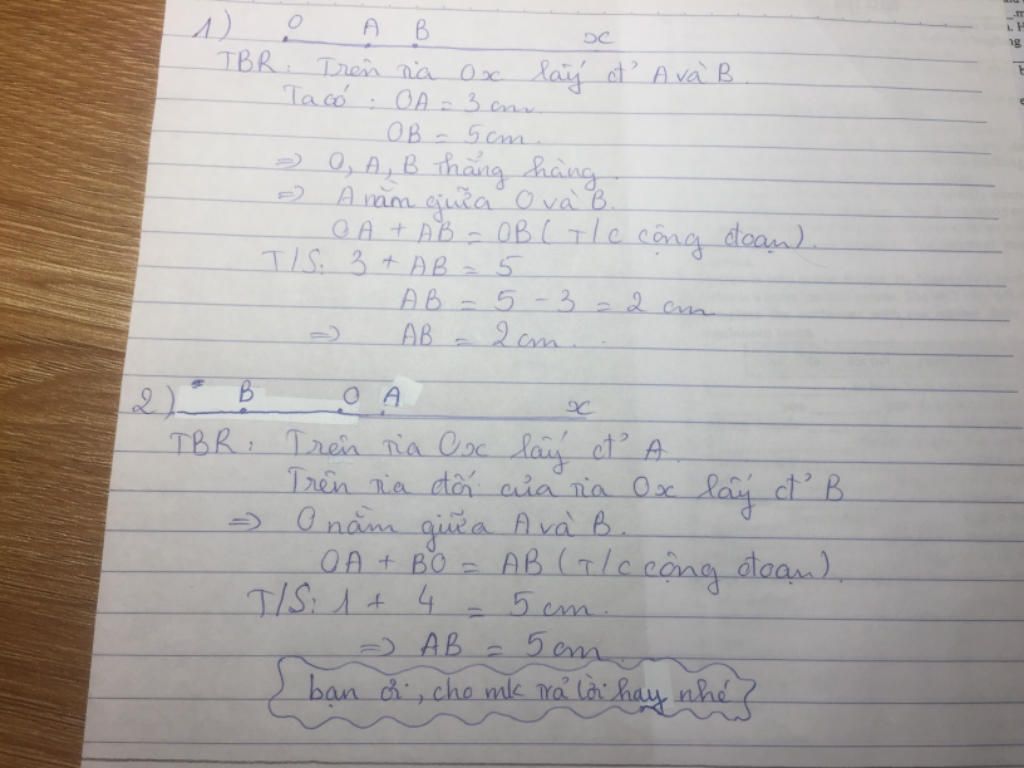 1) O A B x
TBR: Trên tia Ox lấy đ' A và B
Ta có: OA = 3 cm
OB = 5 cm
=> O, A, B thẳng hàng.
=> A nằm giữa O và B.
OA + AB = OB (T/c cộng đoạn).
T/S: 3 + AB = 5
AB = 5 - 3 = 2 cm
=> AB = 2 cm.
2) B O A x
TBR: Trên tia Ox lấy đ' A
Trên tia đối của tia Ox lấy đ' B
=> O nằm giữa A và B.
OA + BO = AB (T/c cộng đoạn).
T/S: 1 + 4 = 5 cm.
=> AB = 5 cm
bạn ơi, cho mk trả lời hay nhé